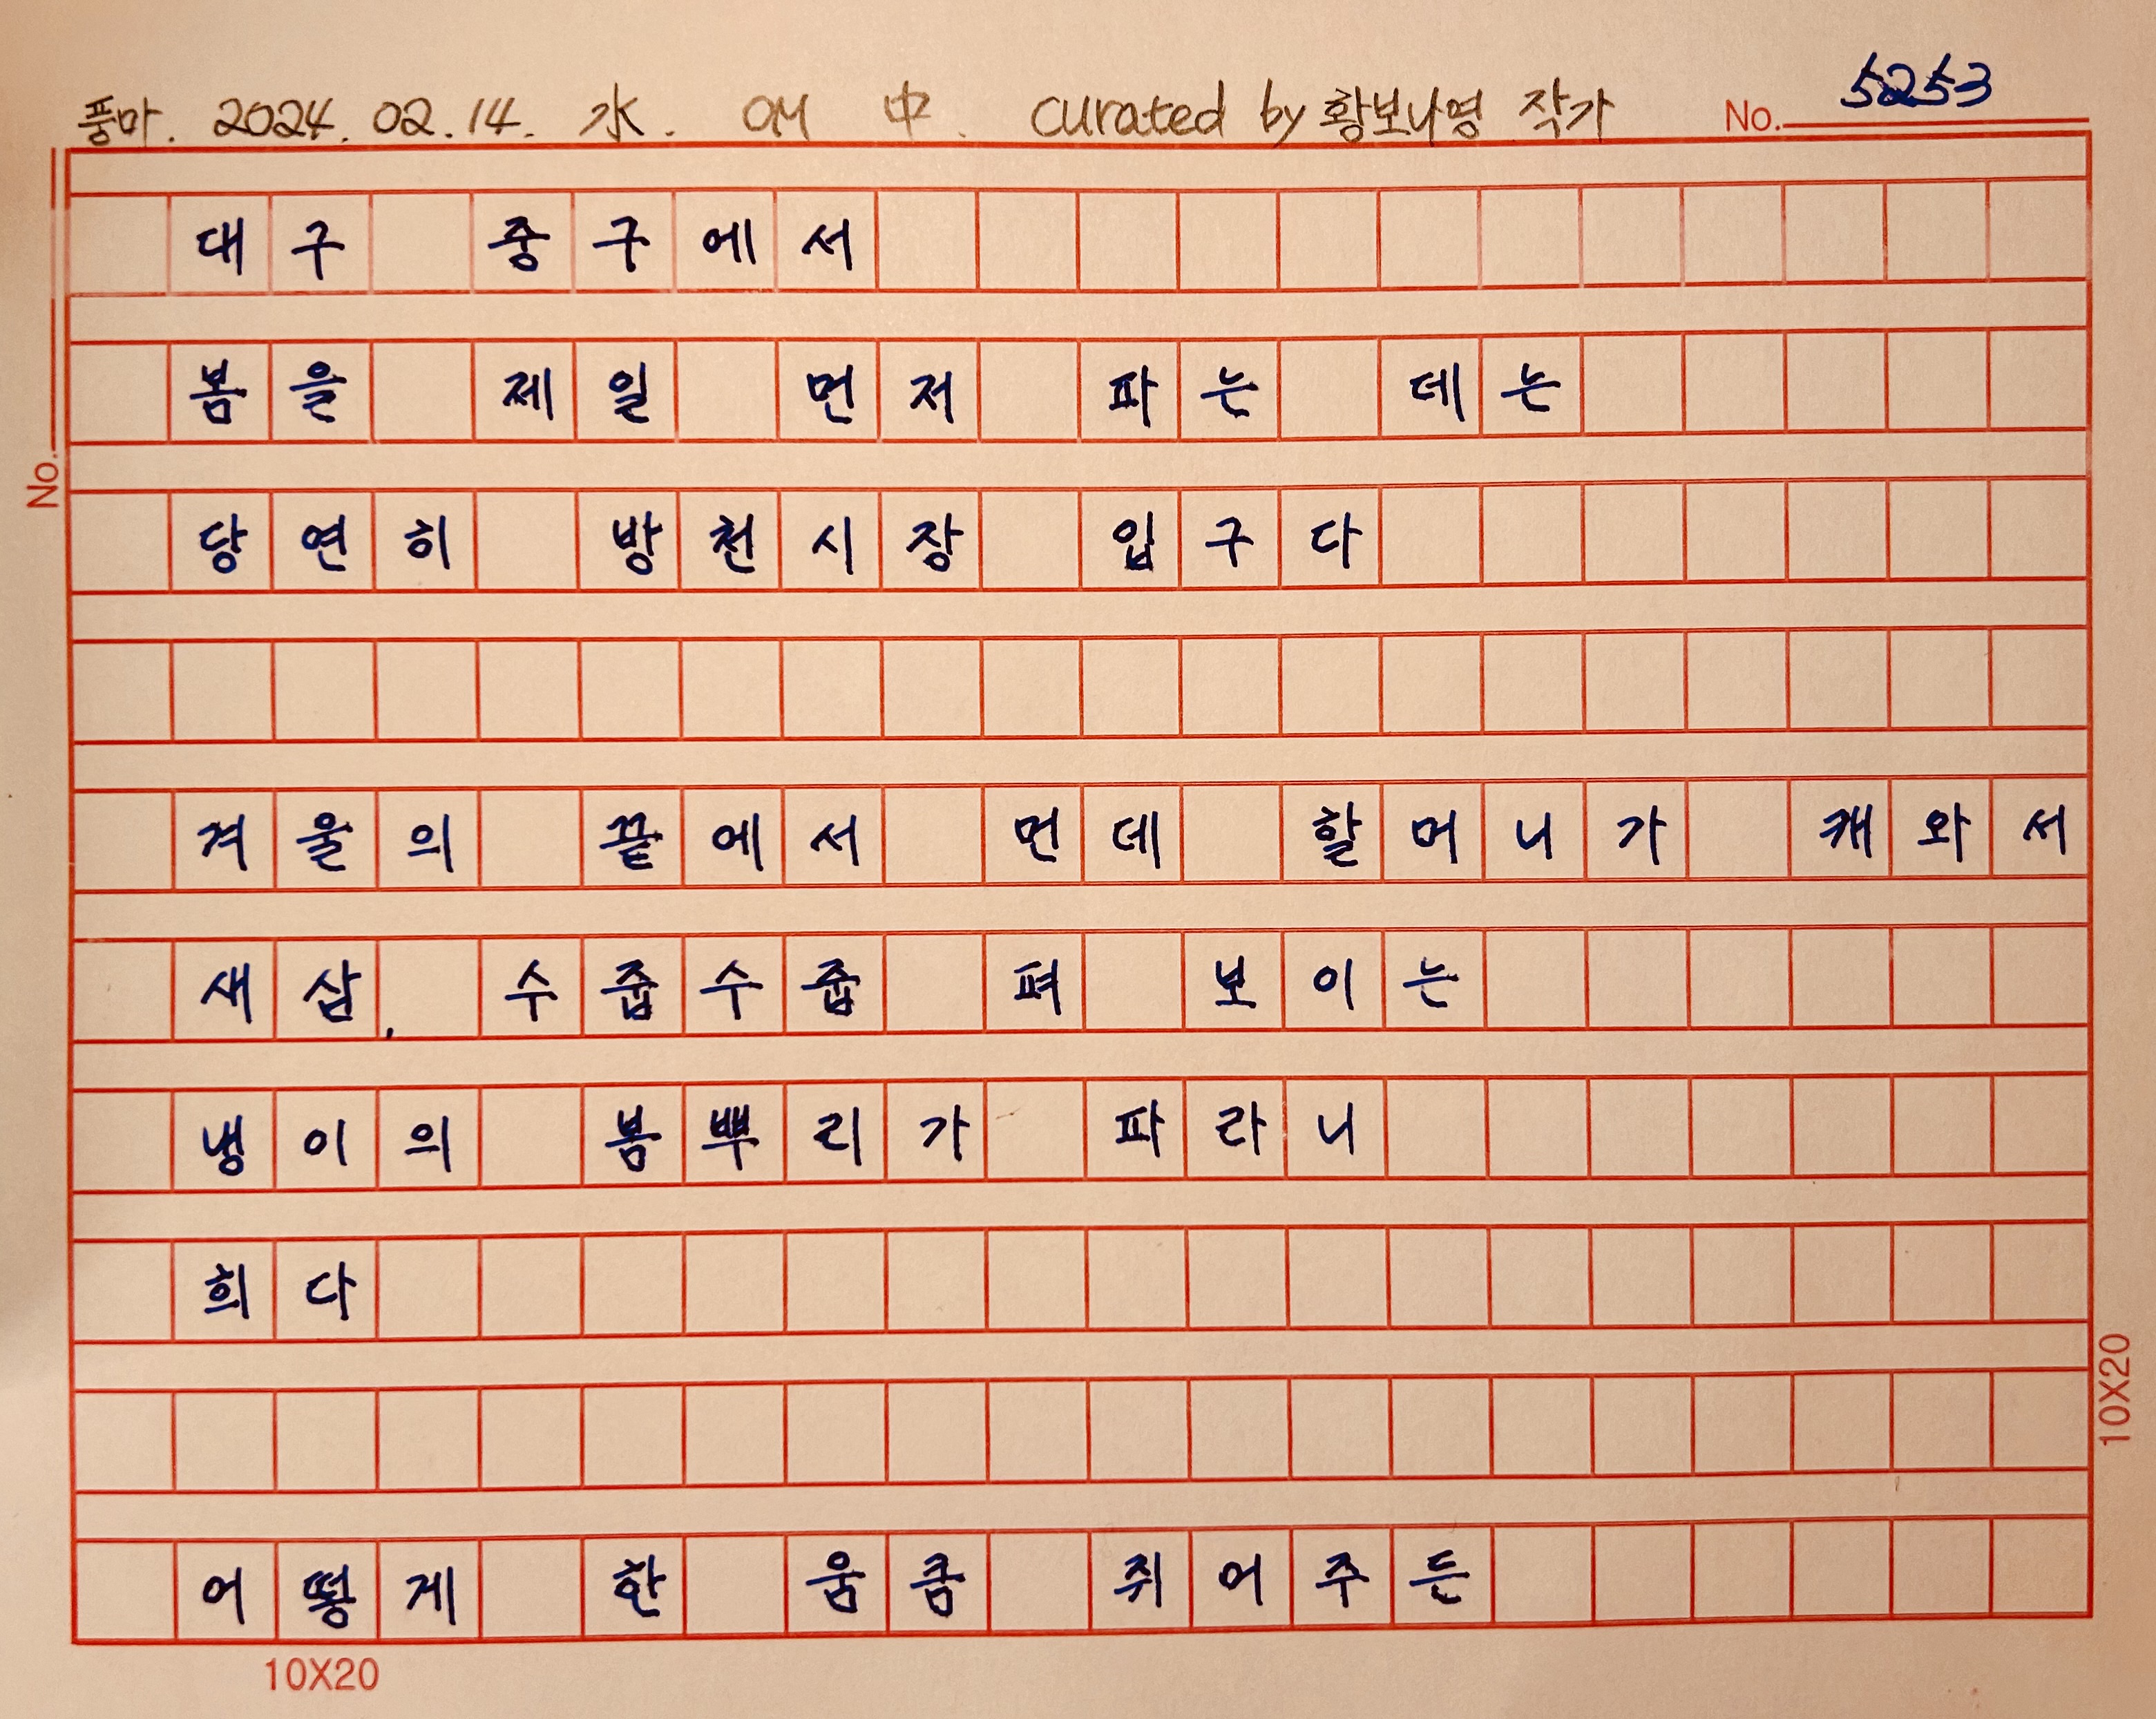 풍마. 2024. 02. 14. 水. 여 中. curated by 황보나영 작가 No. 5253
대구 중구에서
봄을 제일 먼저 파는 데는
No.
당연히 방천시장 입구다
겨울의 끝에서 먼데 할머니가 캐와서
새삼, 수줍수줍 펴 보이는
냉이의 봄뿌리가 파라니
희다
어떻게 한 움큼 쥐어주든
10X20
10X20